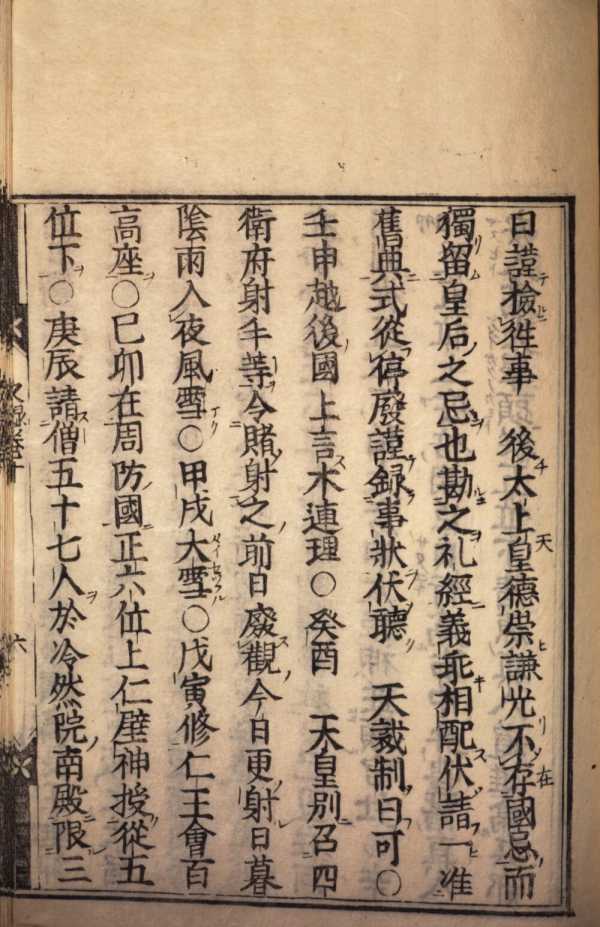 日謹檢徃事　後太上天皇德崇謙光不存國忌而
獨留皇后之忌也勘之礼經義乖相配伏請一准
舊典式從停廢謹録事狀伏聽　天裁制曰可○
壬申越後國上言木連理○癸酉　天皇別召四
衛府射手等令賭射之前日廢觀今日更射日暮
陰雨入夜風雪○甲戌大雪○戊寅修仁王會百
高座○己卯在周防國正六位上仁壁神授從五
位下○庚辰請僧五十七人於冷然院南殿限三
六